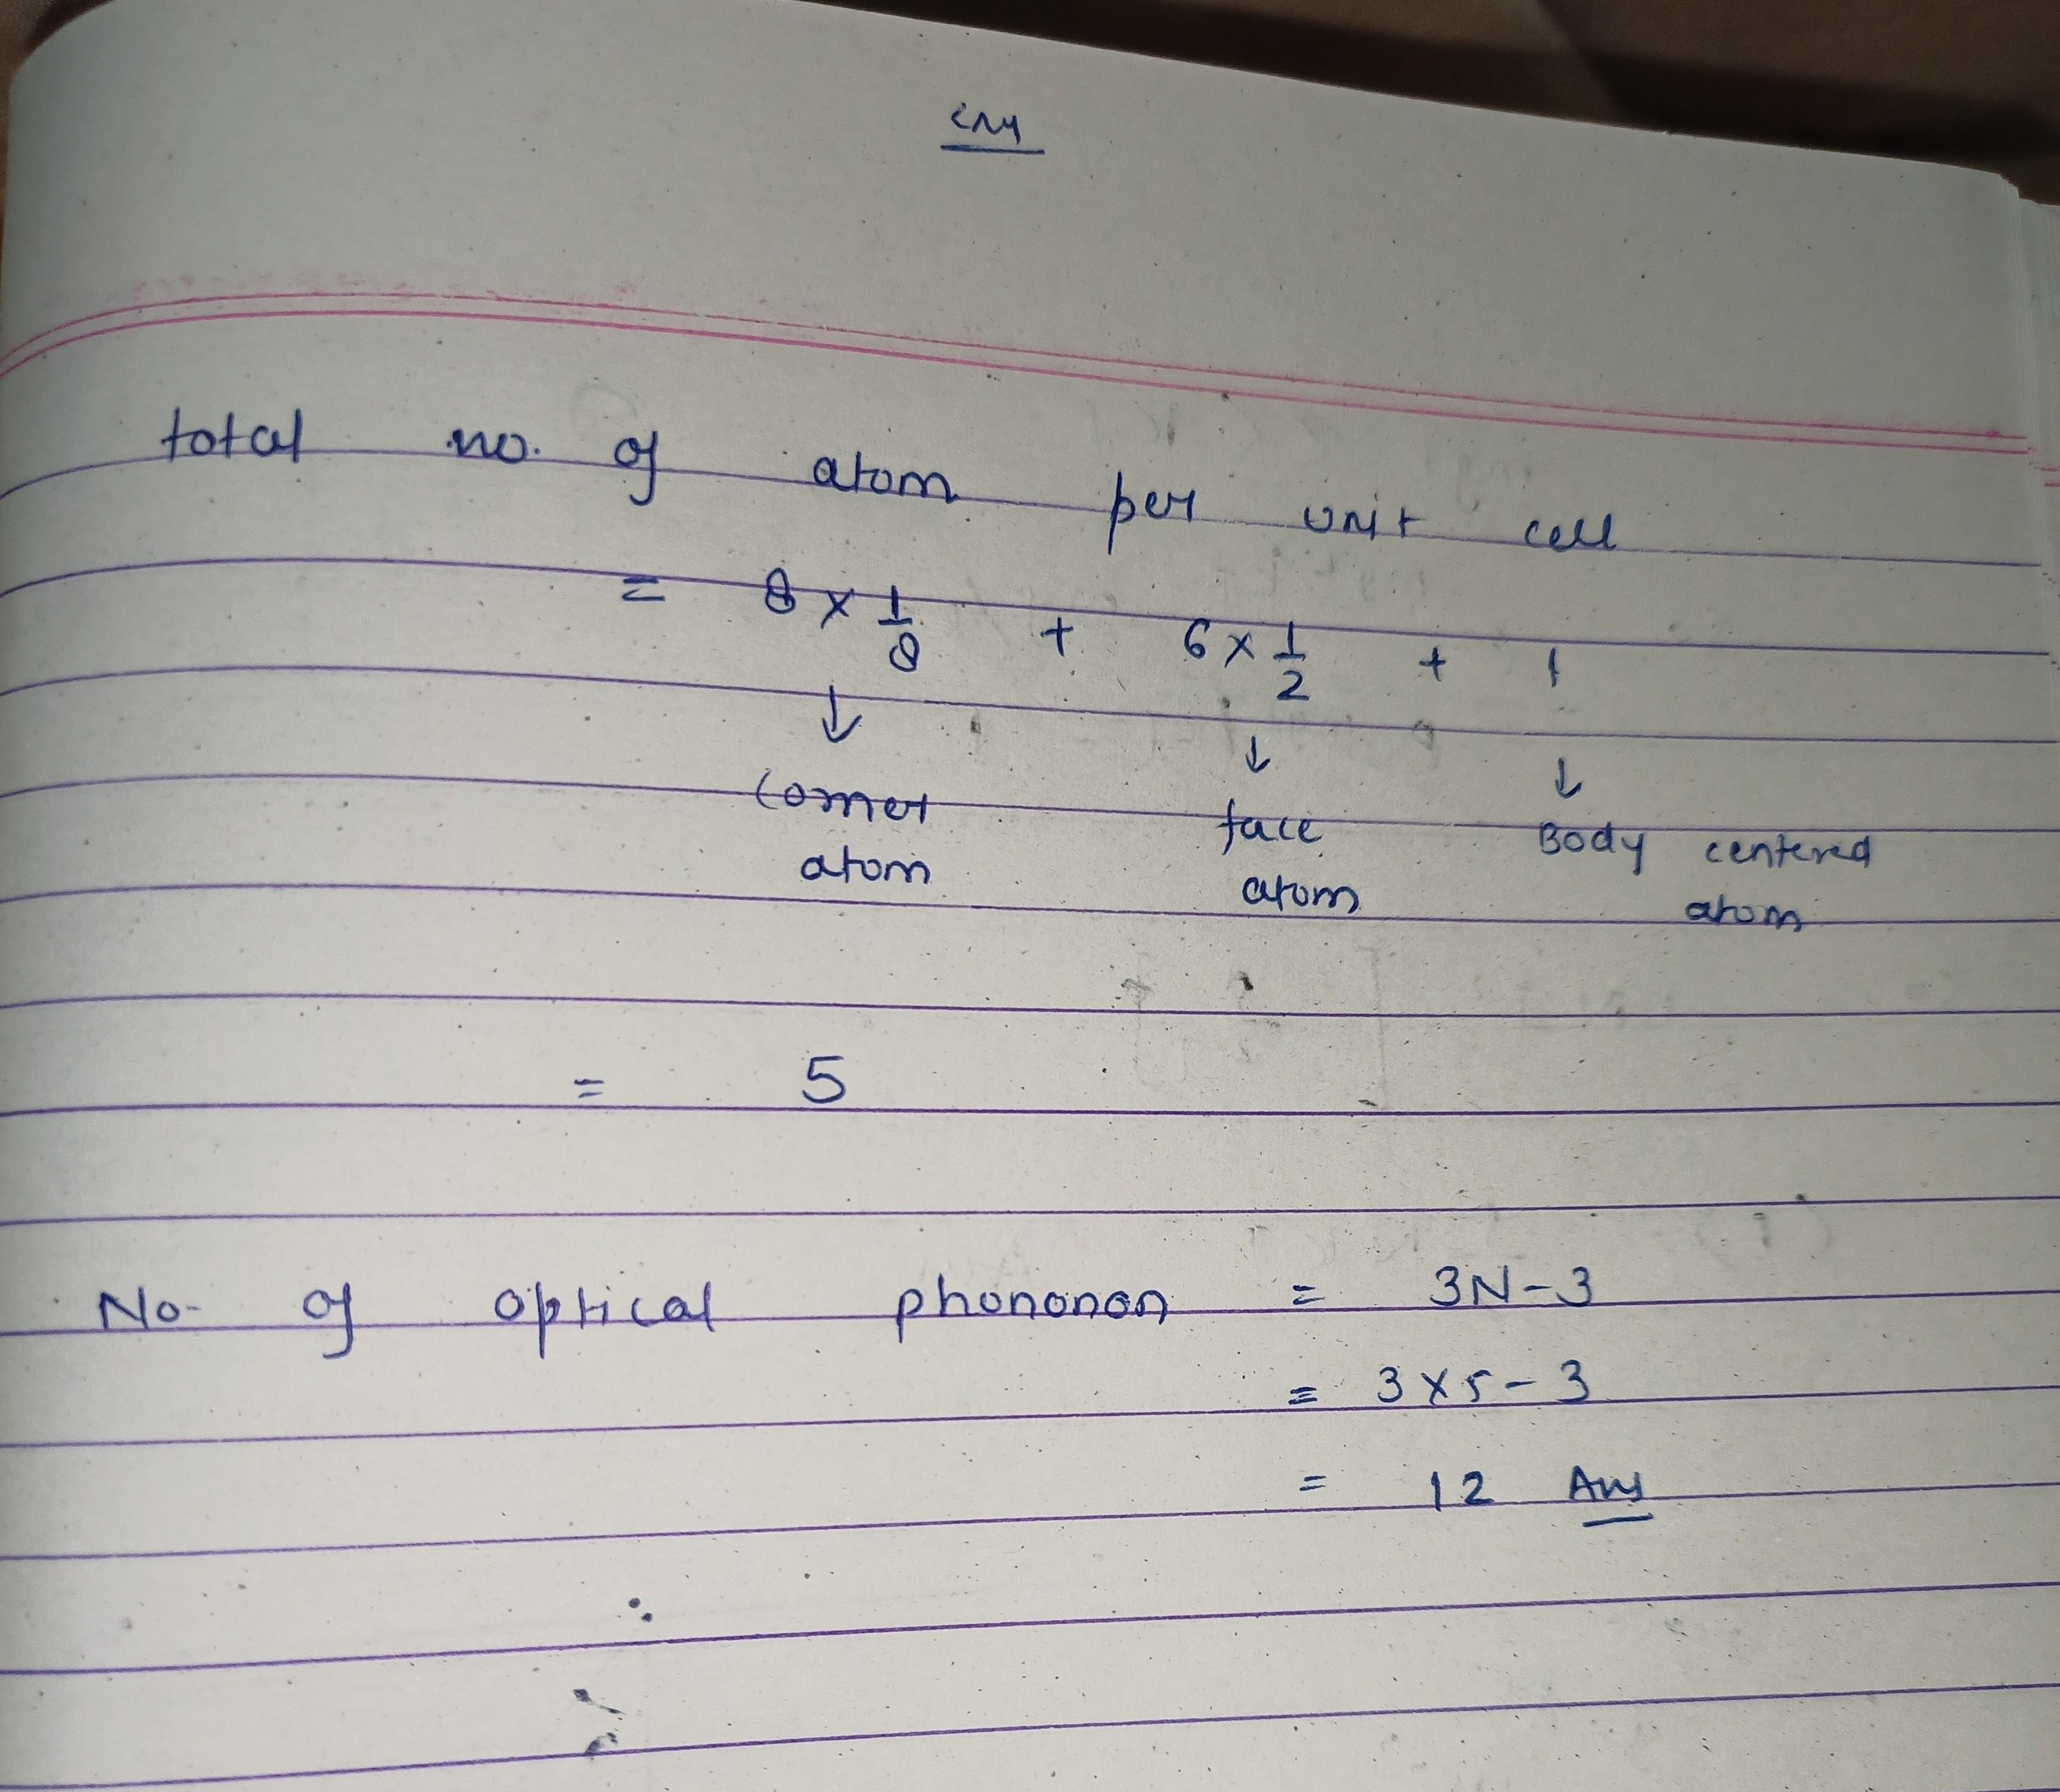 total no. of atom per unit cell
= 8 × 1/8 + 6 × 1/2 + 1
↓ ↓ ↓
Corner face Body centered
atom atom atom
= 5
No. of optical phononon = 3N-3
= 3×5-3
= 12 Ans